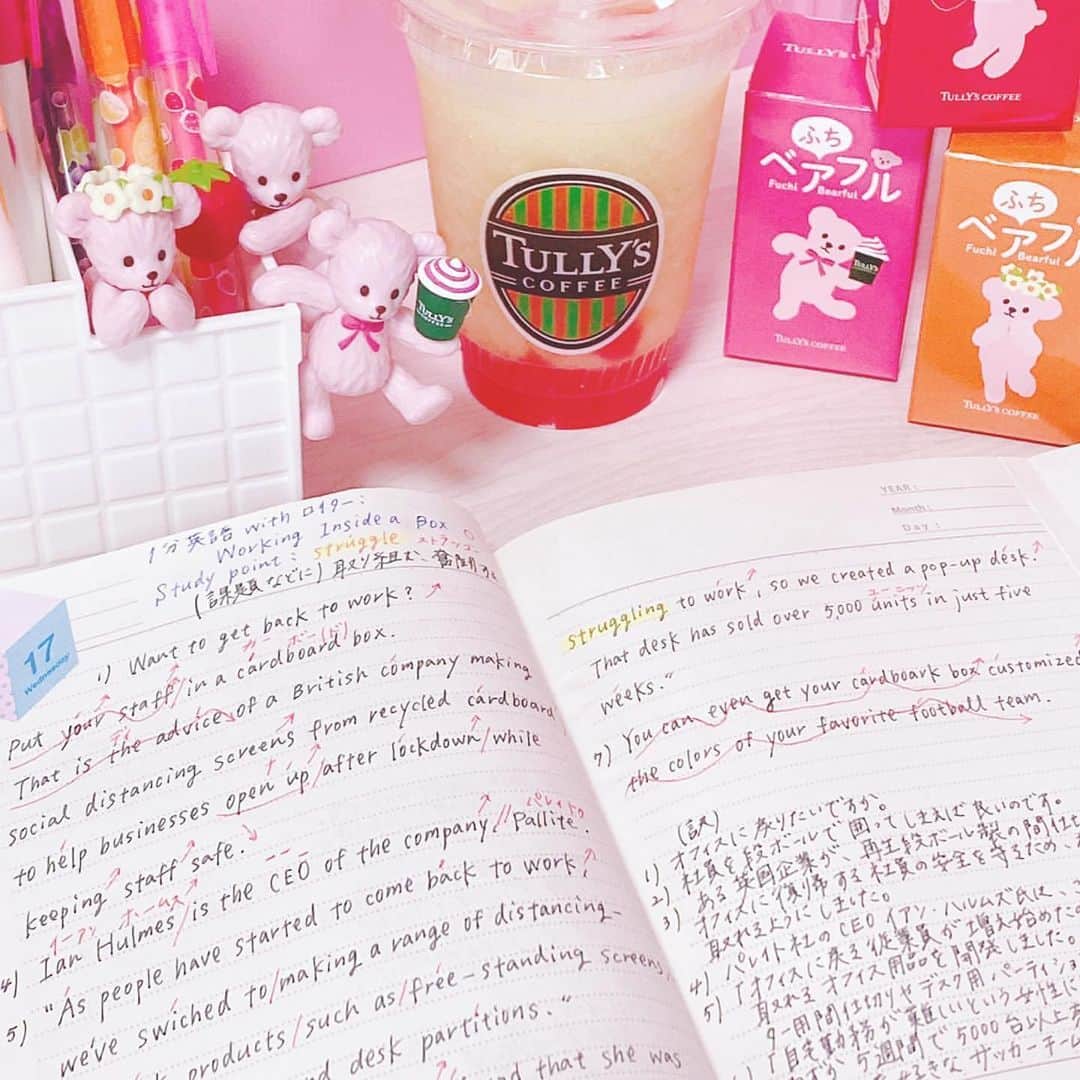 TULLY'S
COFFEE
TULLY'S
TULLY'S
ふち
ベアフル
Fuchi Bearful
TULLY'S
TULLY'S COFFEE
TULLY'S COFFEE
ふち
ベアフ
Fuchi Bearful
TULLY'S COFFEE
1分英語 with ロイター:
Working Inside a Box
Study point: struggle ストラッグー
(課題などに) 取り組む、奮闘する
17
Wednesday
1) Want to get back to work?
カー ボー(ド)
Put your staff / in a cardboard box.
That is the advice of a British company making
social distancing screens from recycled cardboard
to help businesses open up / after lockdown / while
keeping staff safe.
イーアン ホームス パレイトゥ
4) Ian Hulmes / is the CEO of the company, // Pallite.
5) "As people have started to come back to work,
we've swiched to / making a range of distancing-
products / such as / free-standing screens,
nd desk partitions."
nd that she was
YEAR:
Month:
Day:
struggling to work, so we created a pop-up desk.
ユーニッツ
That desk has sold over 5,000 units in just five
weeks."
7) You can even get your cardboark box customized
the colors of your favorite football team.
(訳)
1) オフィスに戻りたいですか。
2) 社員を段ボールで囲ってしまえば良いのです。
3) ある英国企業が、再生段ボール製の間仕
オフィスに復帰する社員の安全を守るため、
取れるようにしました。
4) パレイト社のCEO イアン・ハルムズ氏は、
5) 「オフィスに戻る従業員が増え始めた
取れるオフィス用品を開発しました。
ー用間仕切りやデスク用パーティショ
「自宅勤務が難しいという女性に
ずか5週間で5000台以上
好きなサッカーチーム